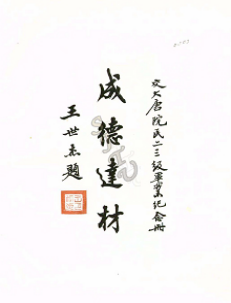 交大唐院民二三級畢業紀念冊
成德達材
王世杰題